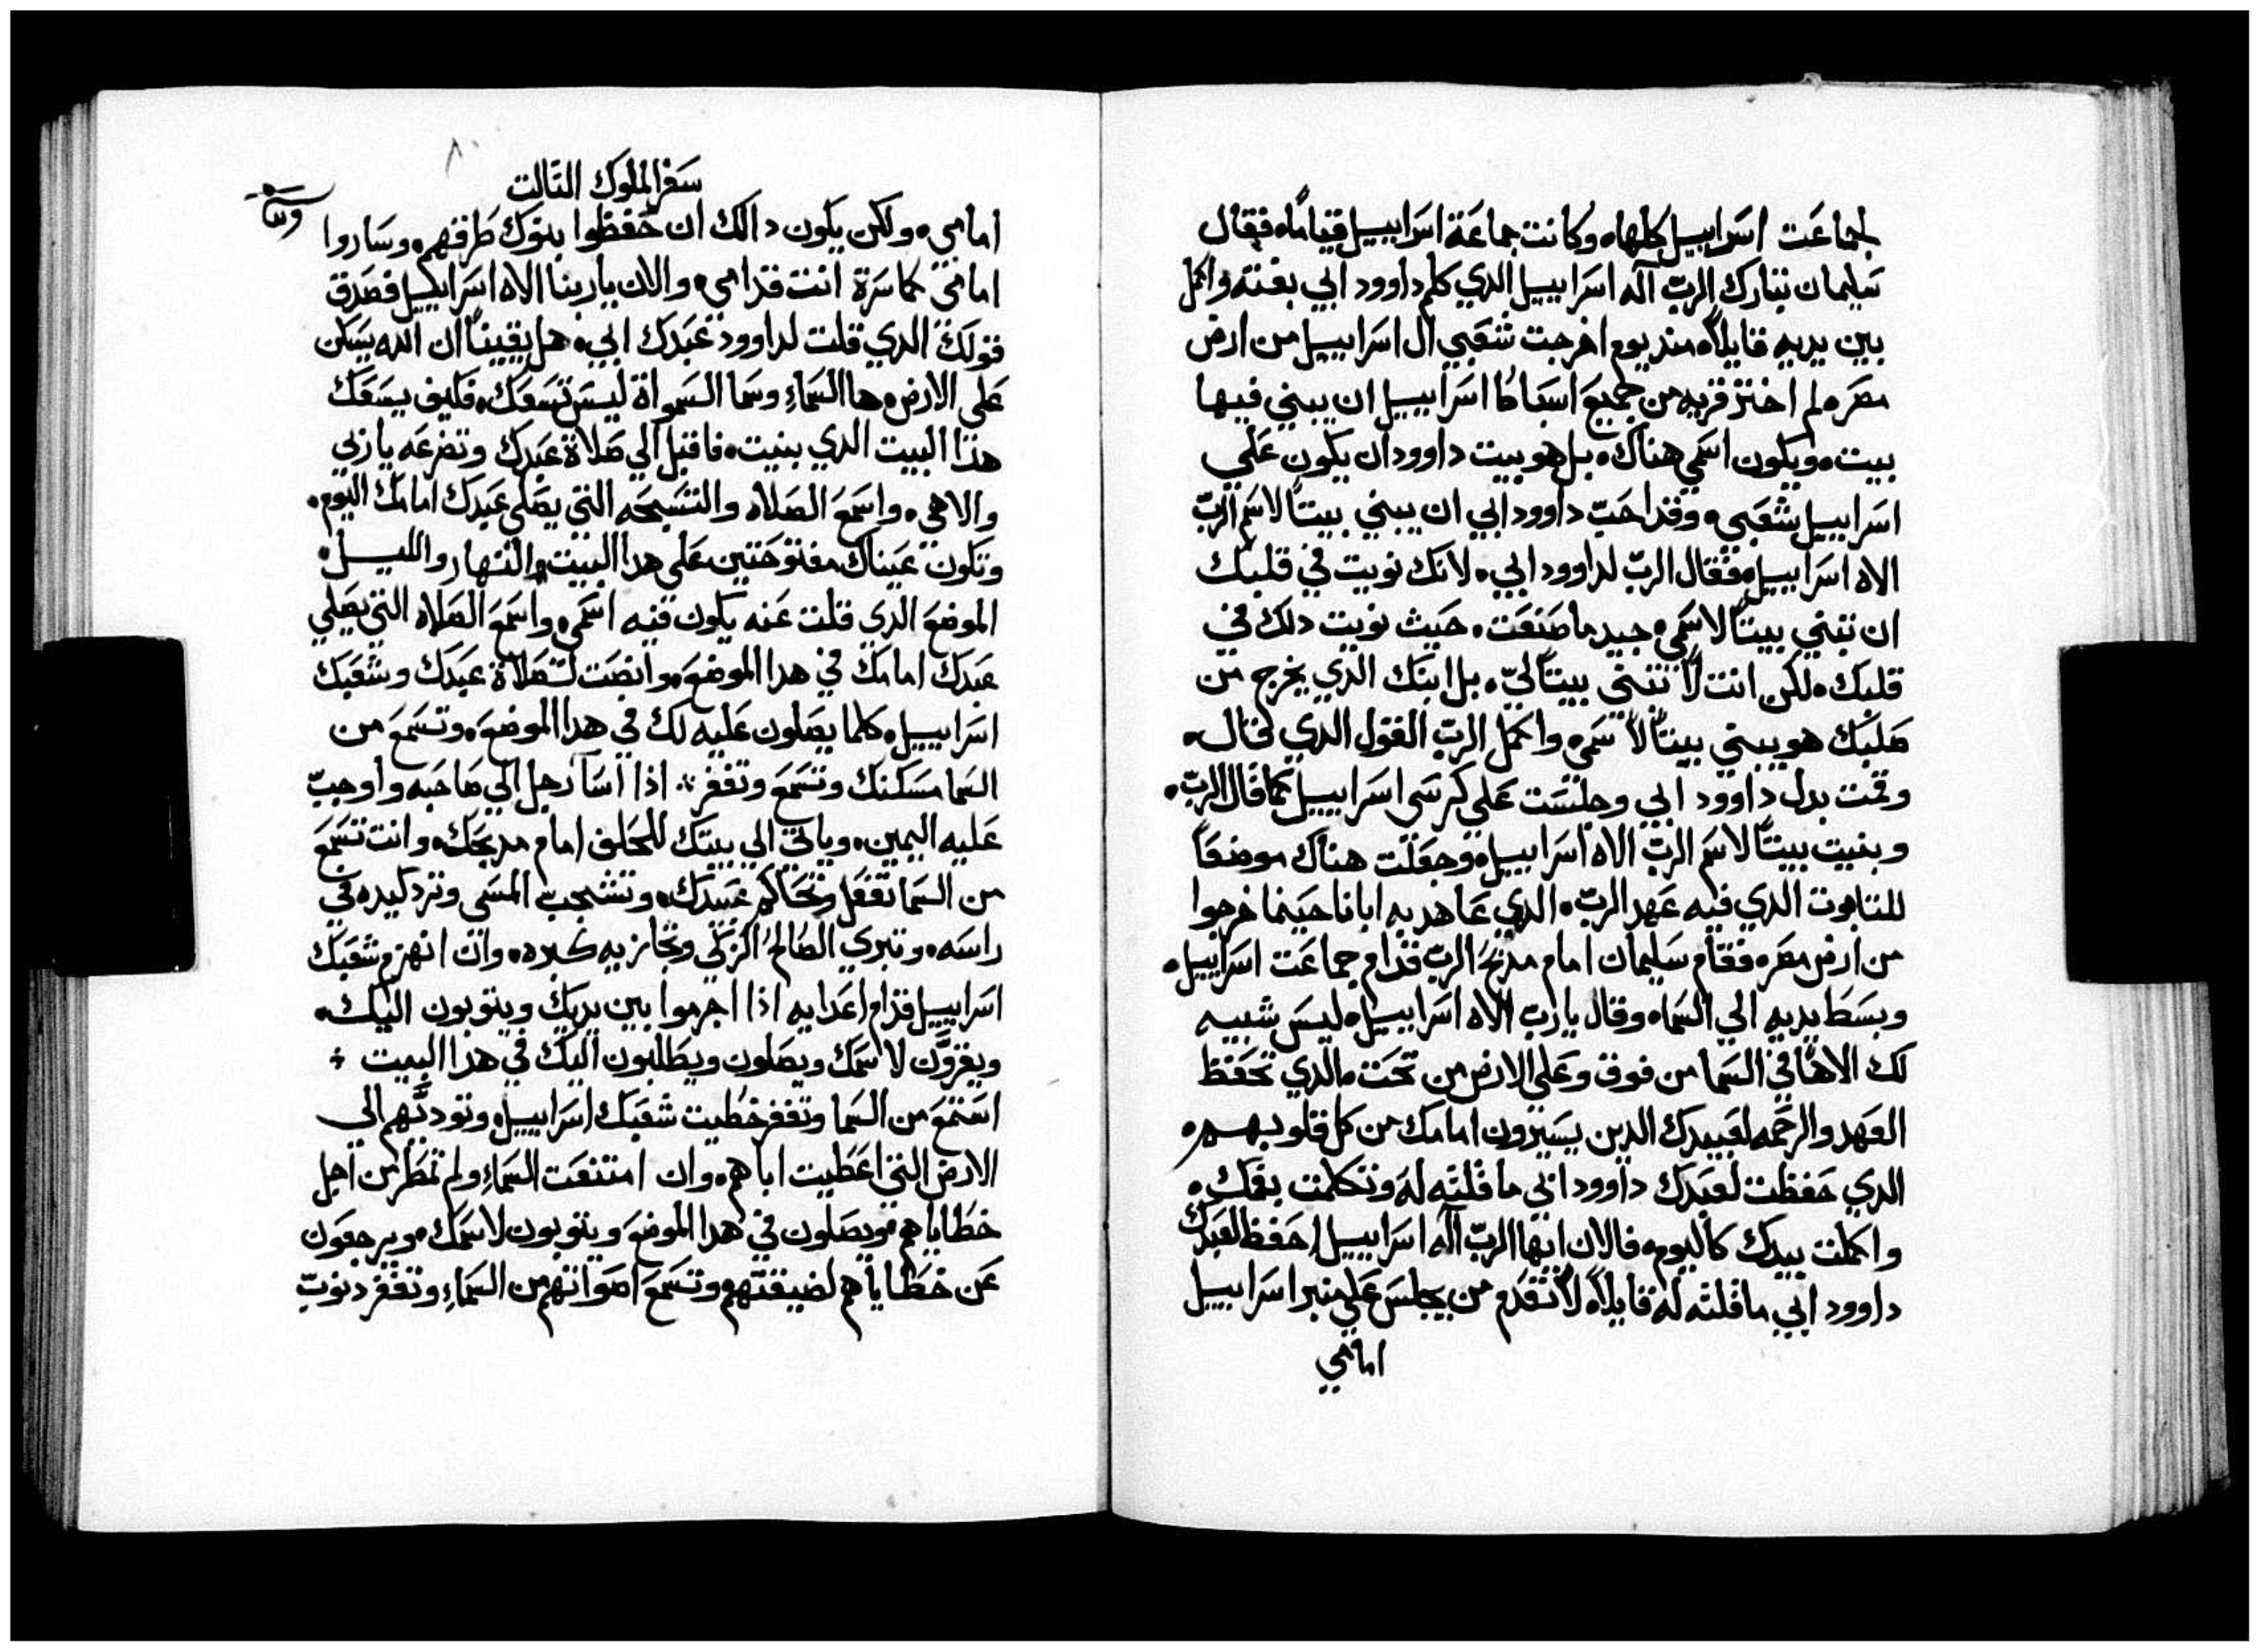 لجماعَت اسَرابييل كلهاه وكانت جماعَة اسَرابييل قياماً ه فقال
سَليمان تبارك الربّ اله اسَرابييل الدي كلم داوود ابي بفنه واكمل
بين يديه قايلاً ه مند يوم اخرجت شعَبي ال اسَرابييل من ارض
مصَر ه لم اختر قريه من جميعَ اسَباط اسَرابييل ان يبني فيها
بيت ه ويكون اسَمي هناك ه بل هو بيت داوود ان يكون عَلي
اسَرابييل شعَبي ه وقد احَبّ داوود ابي ان يبني بيتاً لاسَم الربّ
الاه اسَرابييل ه فقال الربّ لداوود ابي ه لانك نويت في قلبك
ان تبني بيتاً لاسَمي ه جيد ما صَنعَت ه حَيث نويت دلك في
قلبك ه لكن انت لا تبني بيتاً ليّ ه بل ابنك الدي يخرج من
صَلبك هو يبني بيتاً لاسَمي ه واكمل الربّ القول الدي قال ه
وقمت بدل داوود ابي وجلسَت عَلي كرسَي اسَرابييل كما قال الربّ ه
وبنيت بيتاً لاسَم الربّ الاه اسَرابييل ه وجعَلت هناك موضعَاً
للتابوت الدي فيه عَهد الربّ ه الدي عَاهد به ابانا حَينما خرجوا
من ارض مصَر ه فقام سَليمان امام مدبحَ الربّ قدام جماعَت اسَرابييل ه
وبسَط يديه الي السَما ه وقال يا ربّ الاه اسَرابييل ه ليسَ شبيه
لك الاهاً في السَما من فوق وعَلي الارض من تحَت ه الدي تحَفظ
العَهد والرحَمه لعَبيدك الدين يسَيرون امامك من كل قلوبهم ه
الدي حَفظت لعَبدك داوود ابي ما قلته له وتكلمت بفمك ه
واكملت بيدك كاليوم ه فالان ايها الربّ اله اسَرابييل احَفظ لعَبدك
داوود ابي ما قلته له قايلاً ه لا تقدم من يجلسَ عَلي منبر اسَرابييل
امامي
سَفر الملوك التالت
٨٠
امامي ه ولكن يكون دالك ان حَفظوا بنوك طرقهم ه وسَاروا
امامي كما سَرة انت قدامي ه والان يا ربنا الاه اسَرابييل فصَدق
قولك الدي قلت لداوود عَبدك ابي ه هل يقيناً ان الله يسَكن
عَلي الارض ه ها السَماءِ وسَما السَمواة ليسَ تسَعَك ه فكيف يسَعَك
هذا البيت الدي بنيت ه فاقبل الي صَلاة عَبدك وتضرعَه يا ربي
والاهي ه واسَمعَ الصَلاه والتسَبحَه التي يصَلي عَبدك امامك اليوم ه
وتكون عَيناك مفتوحَتين عَلي هدا البيت ه والنهار والليل ه
الموضعَ الدي قلت عَنه يكون فيه اسَمي ه واسَمعَ الصَلاه التي يصَلي
عَبدك امامك في هدا الموضعَ ه وانصَت لصَلاة عَبدك وشعَبك
اسَرابييل ه كلما يصَلون عَليه لك في هدا الموضعَ ه وتسَمعَ من
السَما مسَكنك وتسَمعَ وتغفر ⁘ اذا اسَا رجل الي صَاحَبه واوجبّ
عَليه اليمين ه وياتي الي بيتك للحَلف امام مدبحَك ه وانت تسَمعَ
من السَما تفعَل وتحَاكم عَبيدك ه وتشجب المسَي وترد كيده في
راسَه ه وتبري الصَالحُ الزكي وتجازيه كبره ه وان انهزم شعَبك
اسَرابييل قدام اعَدايه اذا اجرموا بين يديك ويتوبون اليك ه
ويقروَّن لاسَمك ويصَلون ويطَلبون اليك في هدا البيت ⁘
اسَتمعَ من السَما وتغفر خطيت شعَبك اسَرابييل ه وتودّيهم الي
الارض التي اعَطيت اباهم ه وان امتنعَت السَماءِ ولم تمطَر من اجل
خطَاياهم ه ويصَلون في هدا الموضعَ ويتوبون لاسَمك ه ويرجعَون
عَن خطَاياهم لضيقتهم وتسَمعَ اصَواتهم من السَماءِ وتغفر دنوبّ